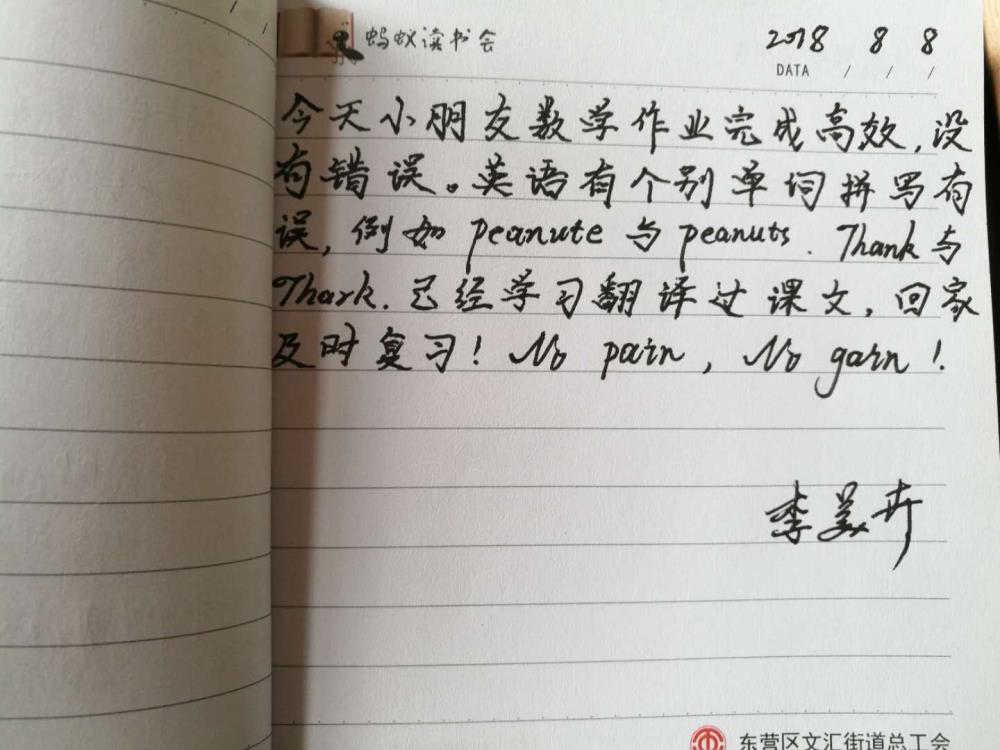 蚂蚁读书会
2018 8 8
DATA / / /
今天小朋友数学作业完成高效,没
有错误。英语有个别单词拼写有
误,例如 peanute 与 peanuts. Thank 与
Thark. 已经学习翻译过课文,回家
及时复习! No pain, No gain!
李美卉
东营区文汇街道总工会